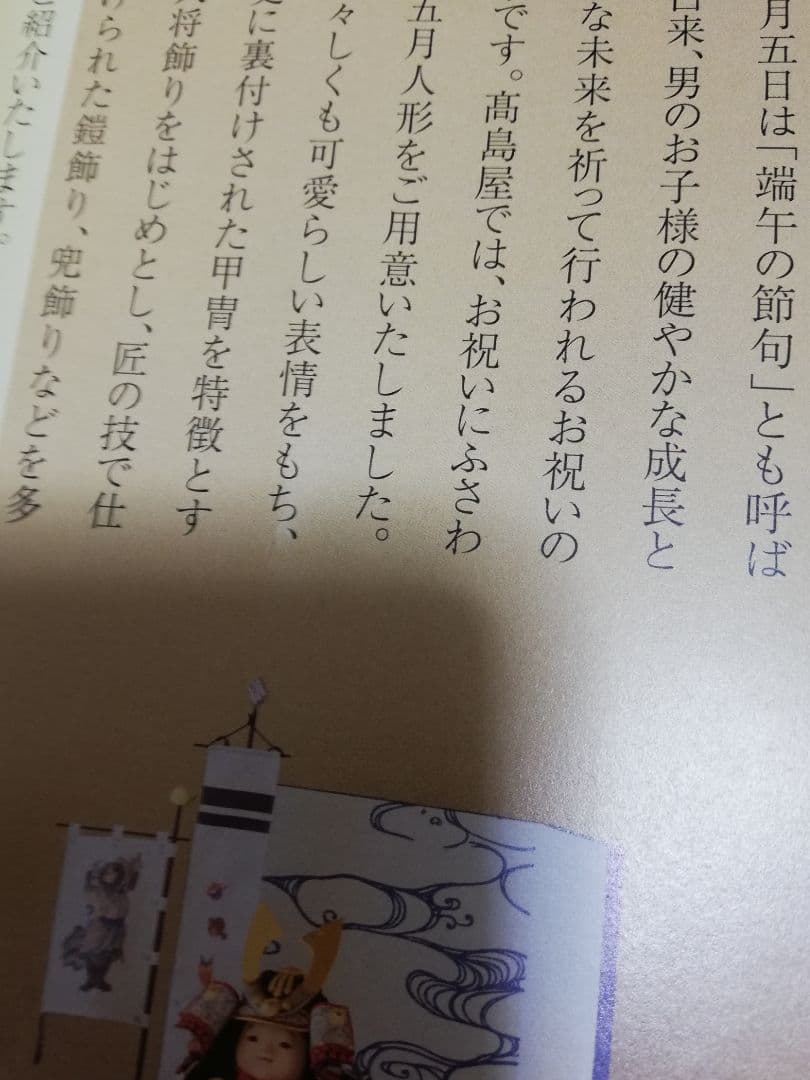 月五日は「端午の節句」とも呼ば
来、男のお子様の健やかな成長と
な未来を祈って行われるお祝いの
です。髙島屋では、お祝いにふさわ
五月人形をご用意いたしました。
々しくも可愛らしい表情をもち、
に裏付けされた甲冑を特徴とす
将飾りをはじめとし、匠の技で仕
られた鎧飾り、兜飾りなどを多
紹介いたします。